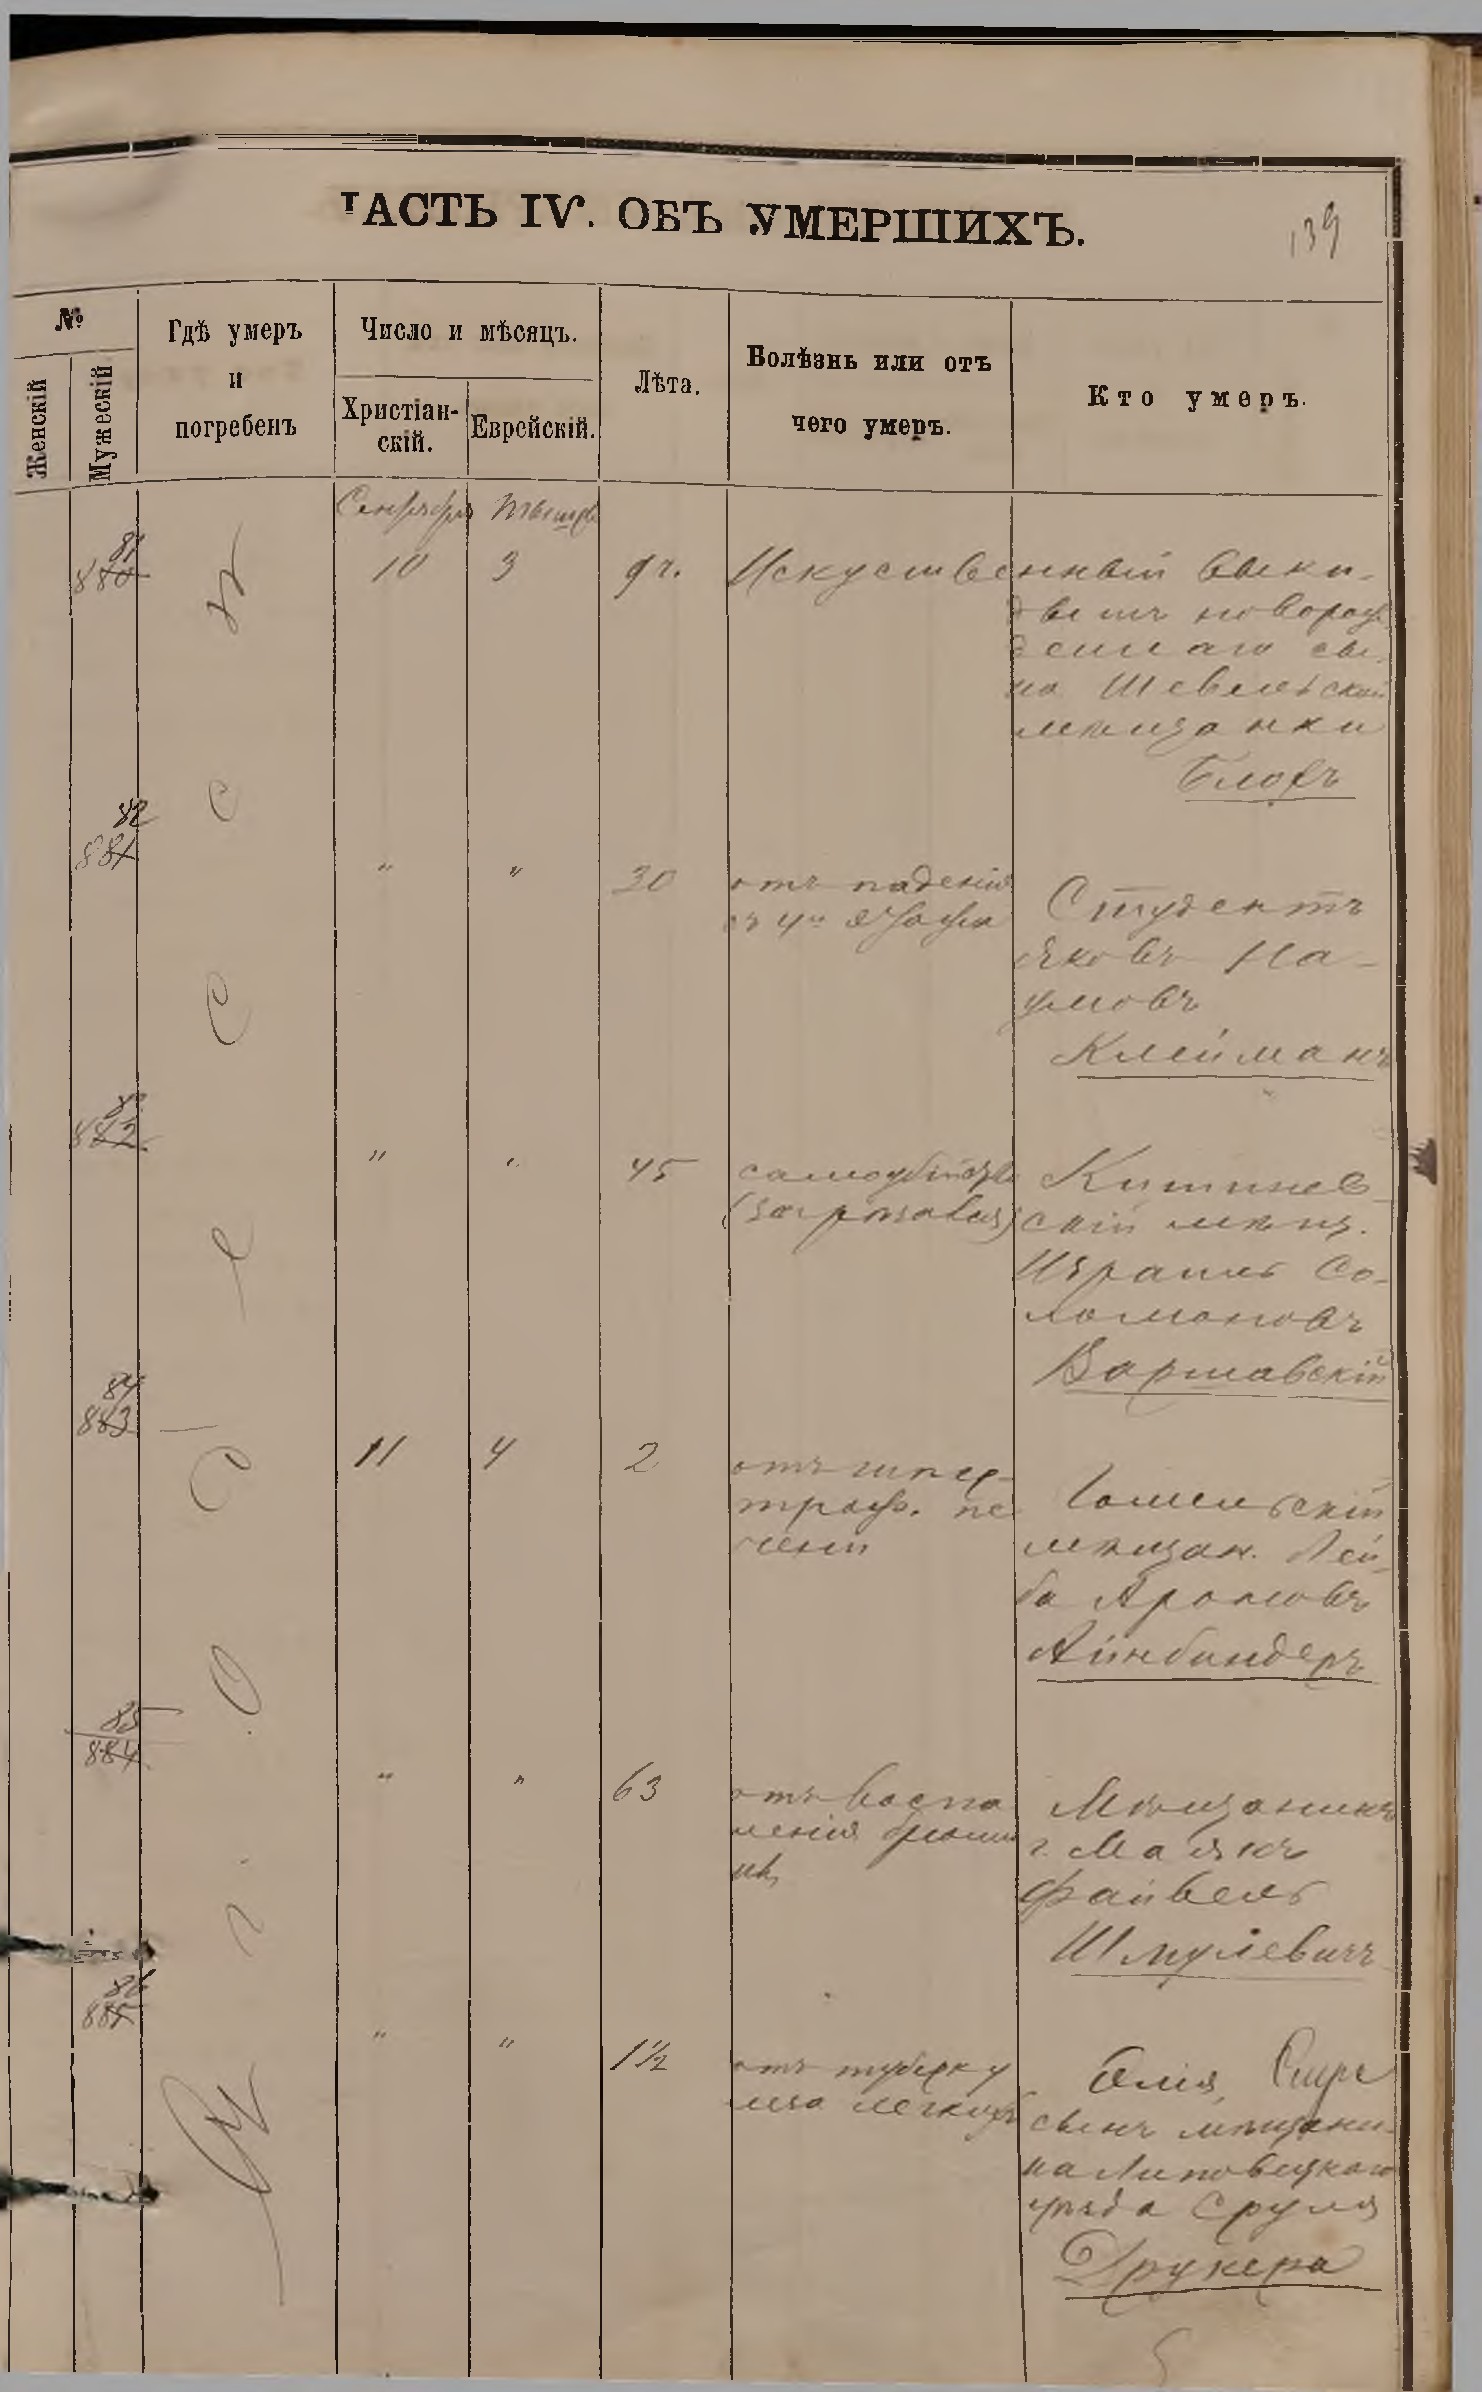 ЧАСТЬ IV. ОБЪ УМЕРШИХЪ.
139
№
Женскій
Мужескій
Гдѣ умеръ
и
погребенъ
Число и мѣсяцъ.
Христіан-
скій.
Еврейскій.
Лѣта.
Болѣзнь или отъ
чего умеръ.
Кто умеръ.
Сентября
81
880
10
3
9 ч.
Искуственный выки-
дышъ новорож
деннаго сы-
на Шевельской
мѣщанки
Блохъ
82
881
"
"
30
отъ паденія
съ 4го этажа
Студентъ
Яковъ На-
умовъ
Клейманъ
83
882
"
"
45
самоубійство
(
Кишинев-
скій мѣщ.
Израиль Со-
ломоновъ
Варшавскій
84
883
11
4
2
отъ гипер-
троф. пе
чени
Гомельскій
мѣщан. Лей-
ба Ароновъ
Айнбиндеръ
85
884
"
"
63
отъ воспа
ленія брюши
ны
Мѣщанинъ
г. Маякъ
Файвель
Шмулевичъ
86
885
"
"
1½
отъ туберку
леза легкихъ
Сынъ мѣщани-
на Липовецкаго
уѣзда Сруля
Друкера
Одесса